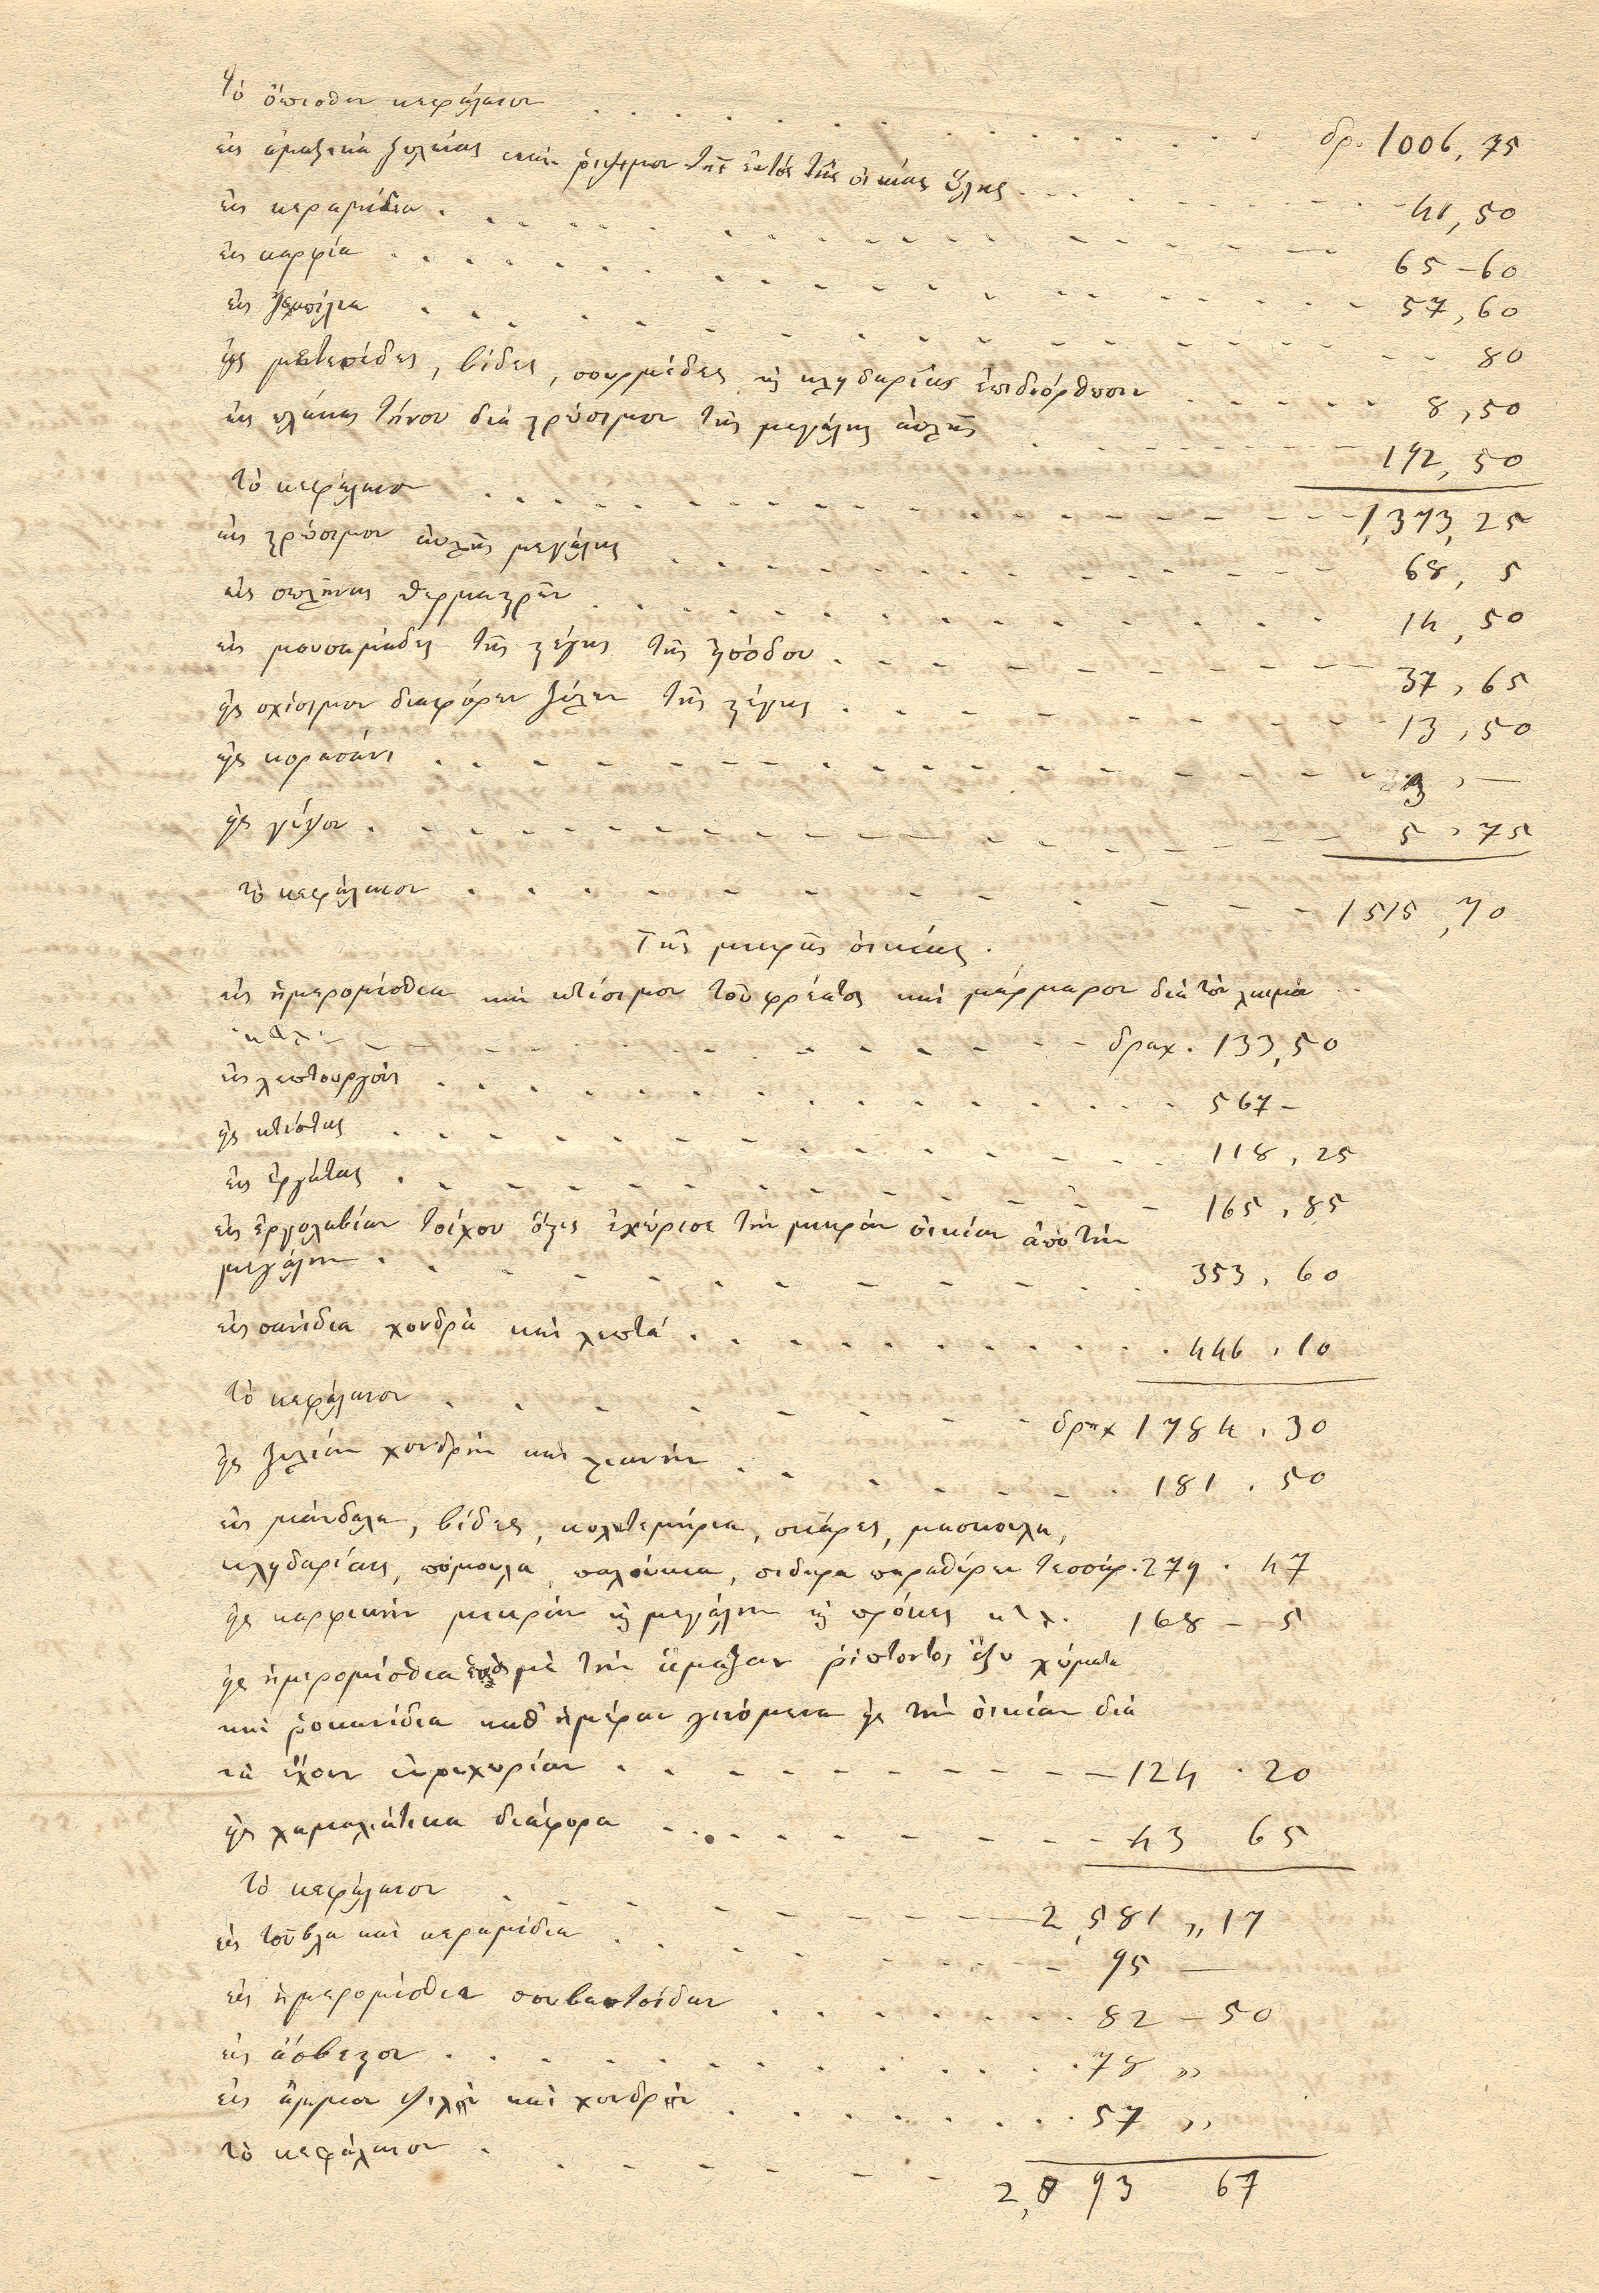 Τὸ ὄπισθεν κεφάλαιον . . . . . . . . . . δρ. 1006,75
εἰς ἁμαξικὰ ξυλείας καὶ ῥίψιμον τῆς ἐντὸς τῆς οἰκίας ὕλης . . . . 41,50
εἰς κεραμίδια . . . . . . . . . . 65-60
εἰς καρφία . . . . . . . . . . 57,60
εἰς ζεμπίλια . . . . . . . . . . 80
εἰς μεντεσέδες, βίδες, σουρμέδες κ κλυδαρίας ἐπιδιόρθωσιν . . . . . 8,50
εἰς πλάκας τήνου διὰ χρύσιμον τῆς μεγάλης αὐλῆς . . . . 192,50
τὸ κεφάλαιον . . . . . . . . . . 1,373,25
εἰς χρύσιμον αὐλῆς μεγάλης . . . . . . . . 68, 5
εἰς σωλῆνας θερμαστρῶν . . . . . . . . . 14,50
εἰς μουσαμάδες τῆς στέγης τῆς εἰσόδου . . . . . . . 37,65
εἰς σχίσιμον διαφόρων ξύλων τῆς στέγης . . . . . . . 13,50
εἰς κορασάνι . . . . . . . . . .
εἰς γύψον . . . . . . . . . . 5,75
τὸ κεφάλαιον . . . . . . . . . . 1515,70
Τῆς μικρῆς οἰκίας.
εἰς ἡμερομίσθια καὶ κτίσιμον τοῦ φρέατος καὶ μάρμαρον διὰ τὸν λαιμόν
κτλ. . . . . . . . . . δραχ. 133,50
εἰς λεπτουργοὺς . . . . . . . . . . 567-
εἰς κτίστας . . . . . . . . . . 118,25
εἰς ἐργάτας . . . . . . . . . . 165,85
εἰς ἐργολαβίαν τοίχου ὅστις ἐχώρισε τὴν μικρὰν οἰκίαν ἀπὸ τὴν
μεγάλην . . . . . . . . . . 353,60
εἰς σανίδια χονδρὰ καὶ λεπτά . . . . . . . . . 446,10
τὸ κεφάλαιον . . . . . . . δραχ 1784,30
εἰς ξυλίαν χονδρὴν καὶ λιανὴν . . . . . . 181.50
εἰς μάνδαλα, βίδες, σκάρες, μάσκουλα,
κλυδαρίας, πόμουλα, παλούκια, σιδηρα παραθύρων τεσσάρ. 279.47
εἰς καρφικὴν μικρὰν κ μεγάλην κ πρόκες κτλ. 168-5
εἰς ἡμερομίσθια μὲ τὴν ἅμαξαν ῥίπτοντος ἔξω χώματα
καὶ ῥοκανίδια καθ ἡμέραν γινόμενα εἰς τὴν οἰκίαν διὰ
νὰ ἔχουν εὐρυχωρίαν . . . . . . . . 124.20
εἰς χαμαλιάτικα διάφορα . . . . . . . . 43 65
τὸ κεφάλαιον . . . . . . . 2,581,,17
εἰς τοῦβλα καὶ κεραμίδια . . . . . . . 95 —
εἰς ἡμερομίσθια σουβατσίδων . . . . . . . 82-50
εἰς ἄσβεστον . . . . . . . . . . 78 ,,
εἰς ἄμμον ψιλὴν καὶ χονδρὴν . . . . . . . 57 ,,
τὸ κεφάλαιον . . . . . . . 2,893 67